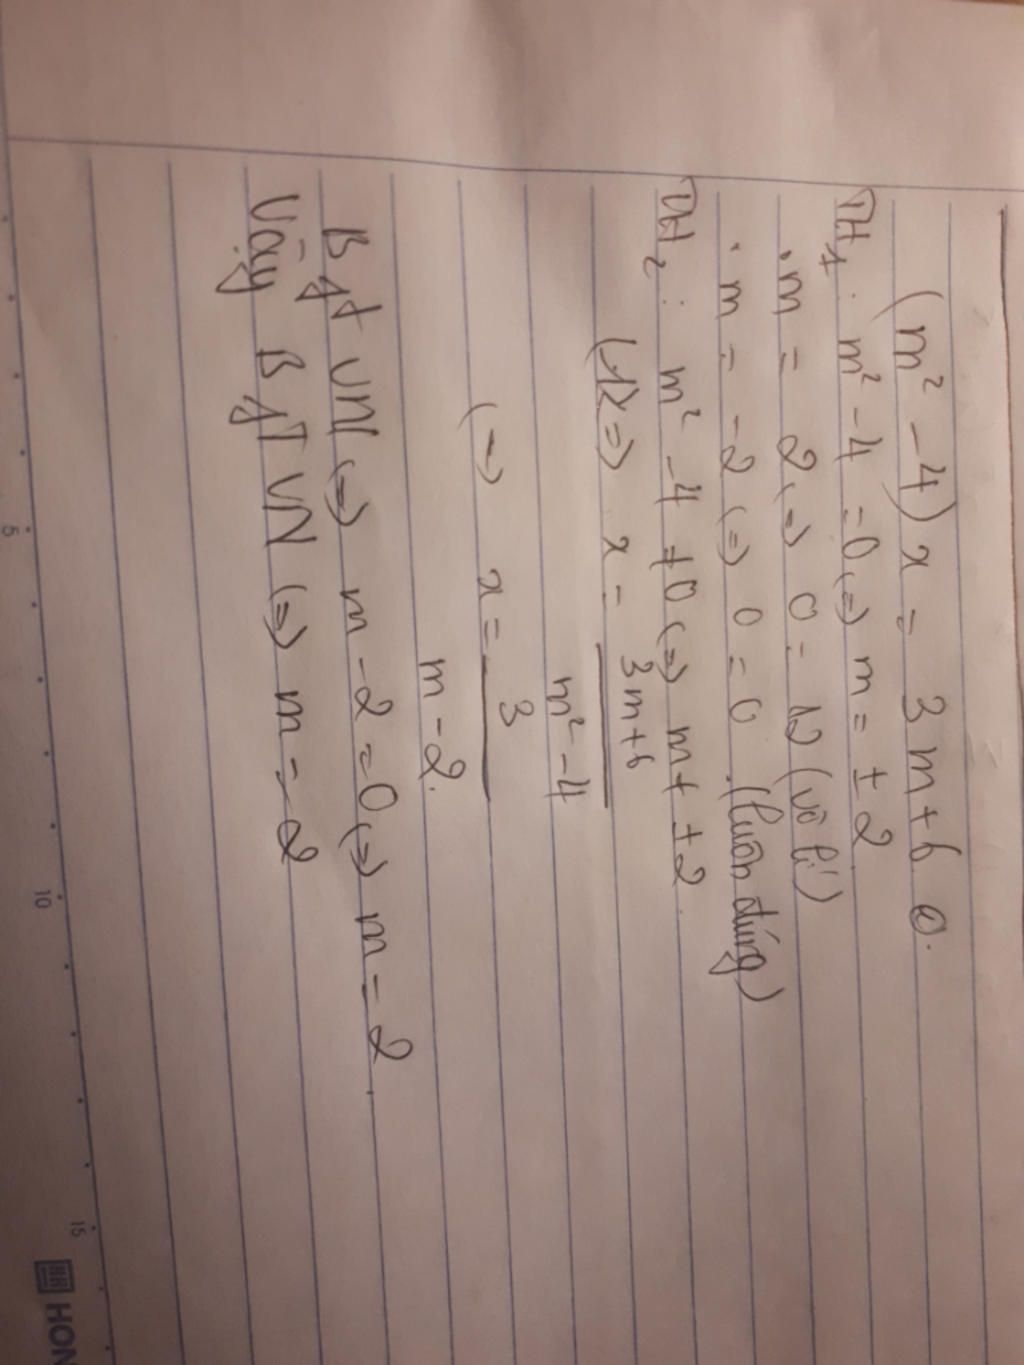 (m² - 4) x = 3m + 6 ⓪.
TH₁ : m² - 4 = 0 (=) m = ± 2
. m = 2 (=) 0 = 12 (vô lí)
. m = -2 (=) 0 = 0 (luôn đúng)
TH₂ : m² - 4 ≠ 0 (=) m ≠ ± 2
=) x = 3m+6 / m² - 4
(=) x = 3 / m - 2.
BPT VN (=) m - 2 = 0 (=) m = 2.
Vậy BPT VN (=) m = 2
5
10
15
HON